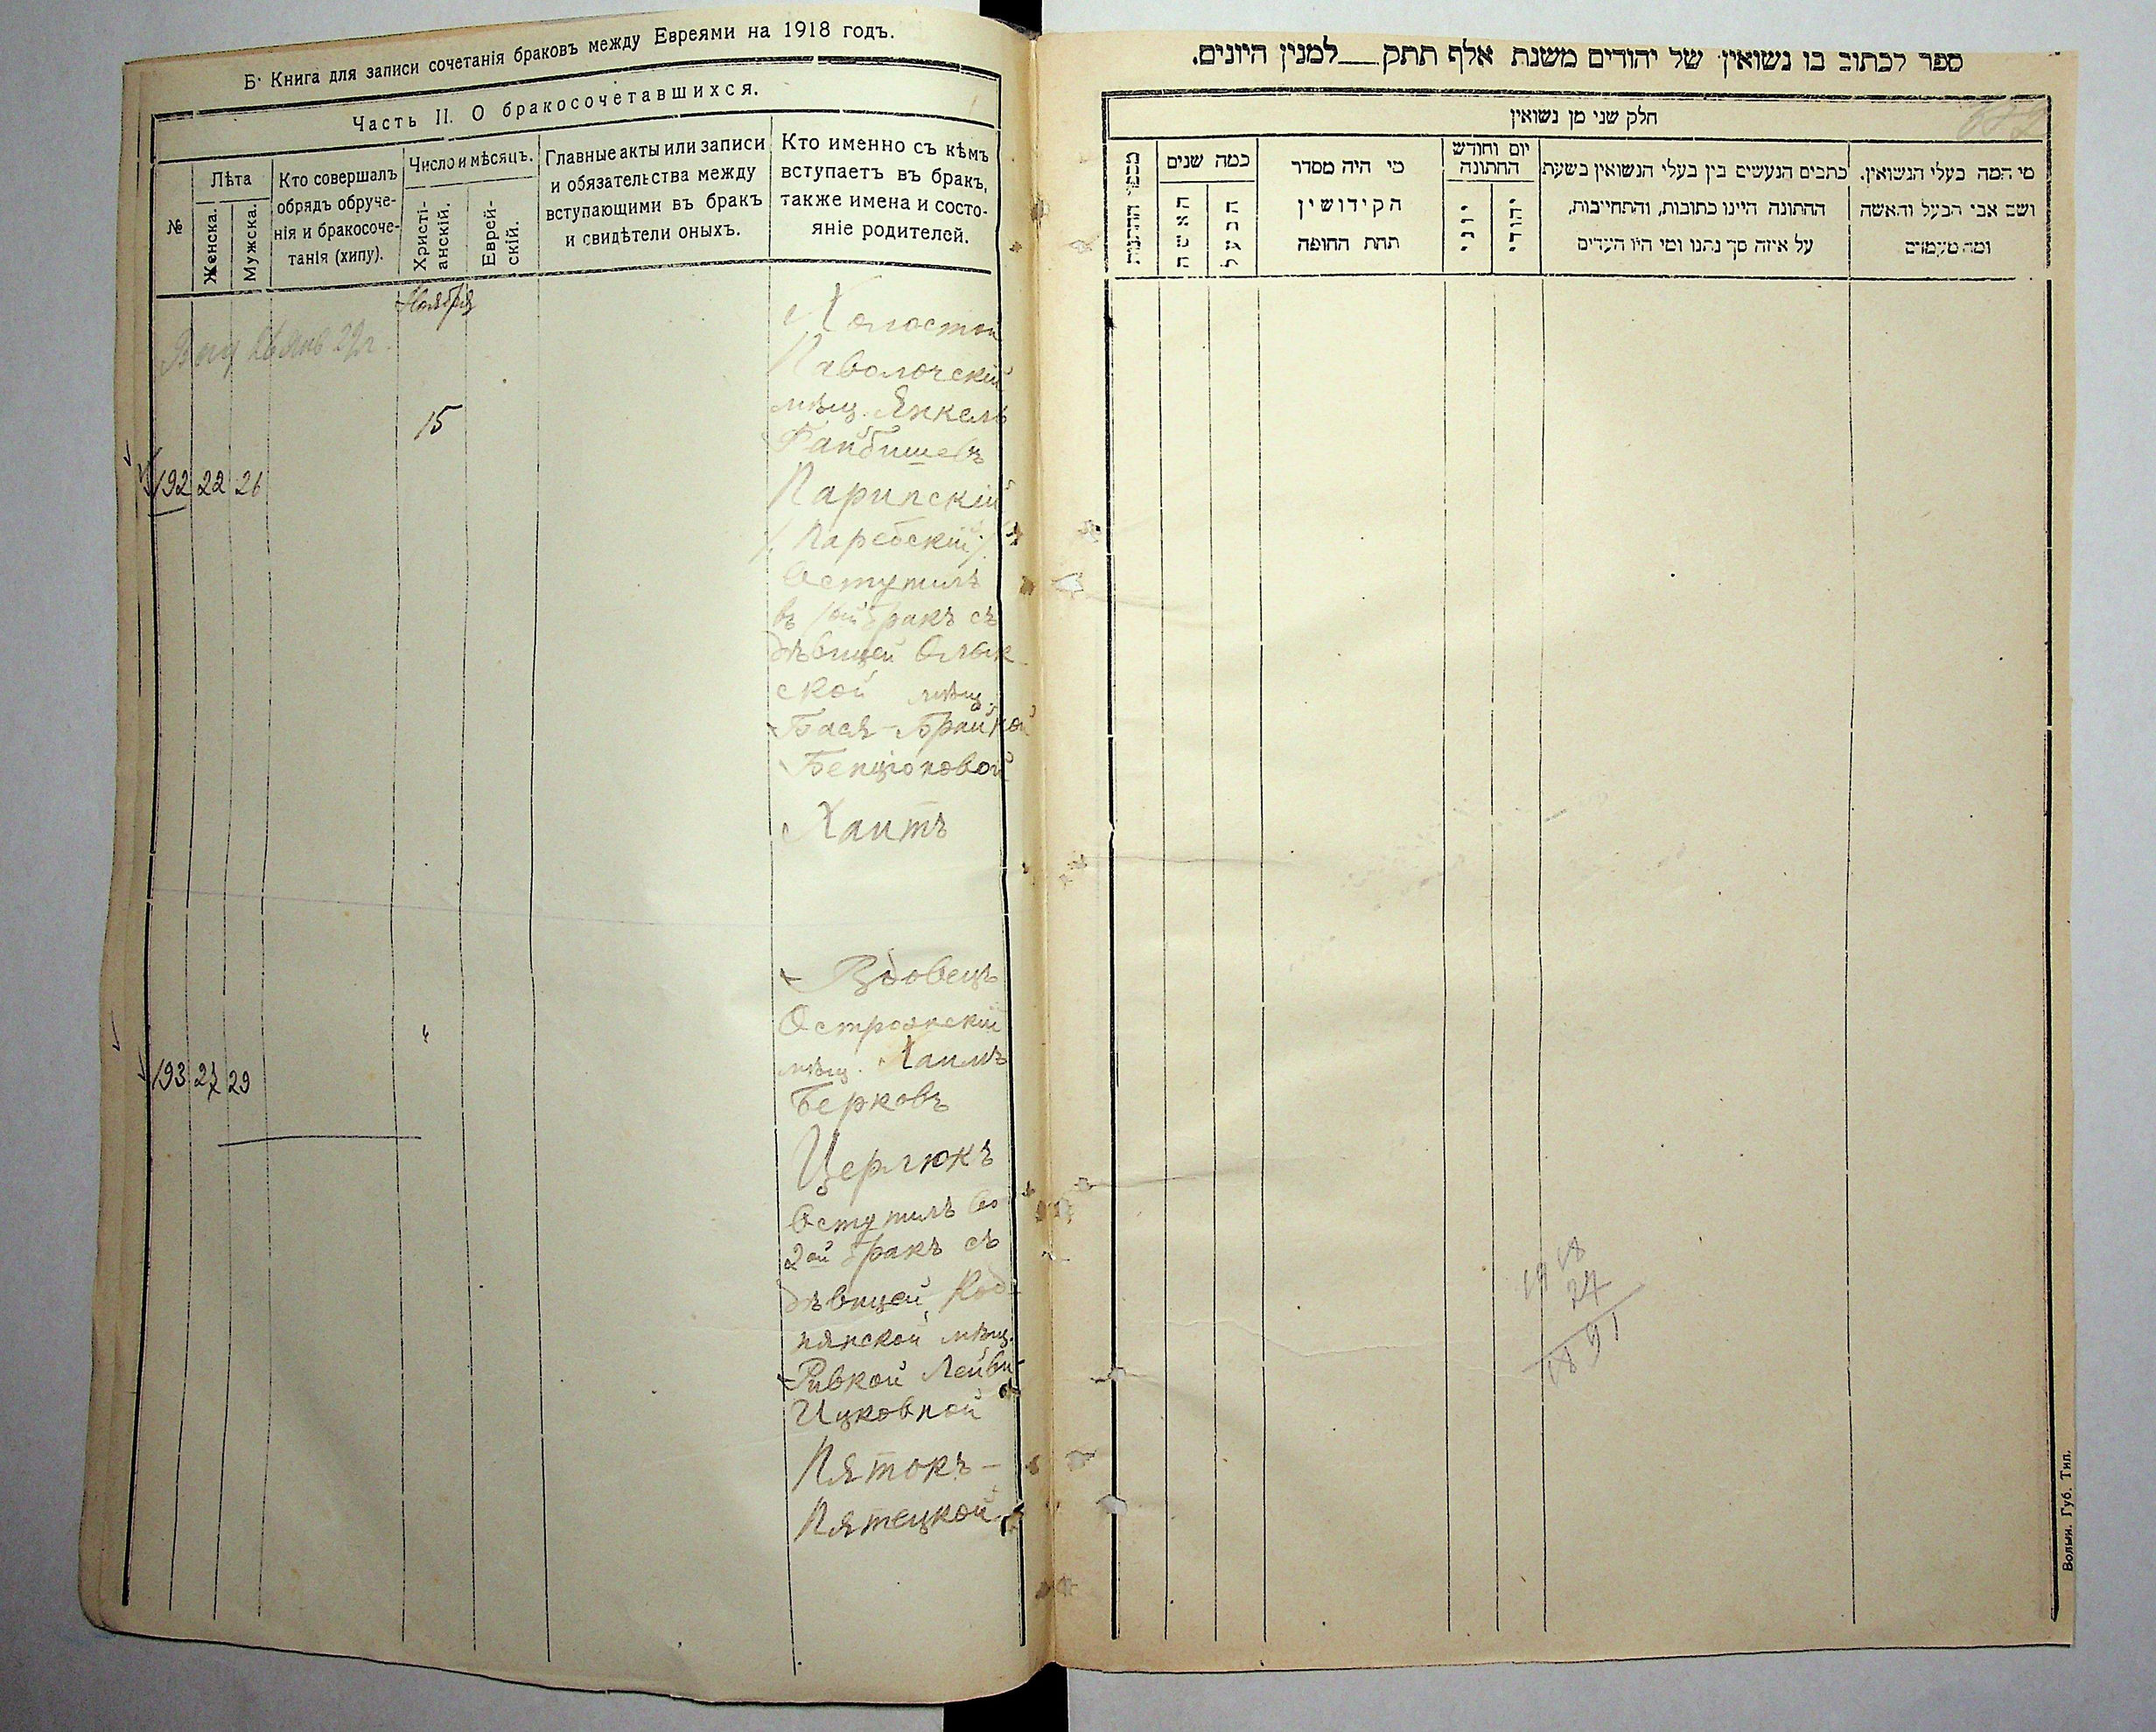 Б. Книга для записи сочетанія браковъ между Евреями на 1918 годъ.
Часть II. О бракосочетавшихся.
№
Лѣта
Женска.
Мужска.
Кто совершалъ
обрядъ обруче-
нія и бракосоче-
танія (хипу).
Число и мѣсяцъ.
Христі-
анскій.
Еврей-
скій.
Главные акты или записи
и обязательства между
вступающими въ бракъ
и свидѣтели оныхъ.
Кто именно съ кѣмъ
вступаетъ въ бракъ,
также имена и состо-
яніе родителей.
Ноября
192 22 26
15
Холостой
Паволочскій
мѣщ. Янкель
Файбишевъ
Парипскій
(Паребскій)
вступилъ
въ 1ый бракъ съ
дѣвицей Олык-
ской мѣщ.
Бася-Брайной
Бенціоновой
Хаитъ
193 27 29
"
Вдовецъ
Острожскій
мѣщ. Хаимъ
Берковъ
Церлюкъ
вступилъ во
2ой бракъ съ
дѣвицей Код-
нянской мѣщ.
Ривкой Лейви-
Ицковной
Пятокъ-
Пятецкой
ספר לכתוב בו נשואין של יהודים משנת אלף תתק__למנין היונים.
חלק שני מן נשואין
כמה שנים
האשה
הבעל
מי היה מסדר
הקידושין
תחת החופה
יום וחודש
החתונה
יוני
יהודי
כתבים הנעשים בין בעלי הנשואין בשעת
החתונה היינו כתובות, והתחייבות,
על איזה סך נתנו ומי היו העדים
מי המה בעלי הנשואין.
ושם אבי הבעל והאשה
ומה מעמדם
1918
27
1891
Волын. Губ. Тип.